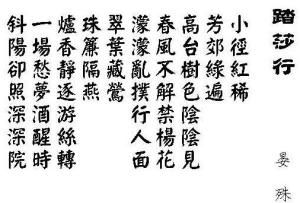 踏莎行
晏殊
小徑紅稀
芳郊綠遍
高台樹色陰陰見
春風不解禁楊花
濛濛亂撲行人面
翠葉藏鶯
珠簾隔燕
爐香靜逐游絲轉
一場愁夢酒醒時
斜陽卻照深深院